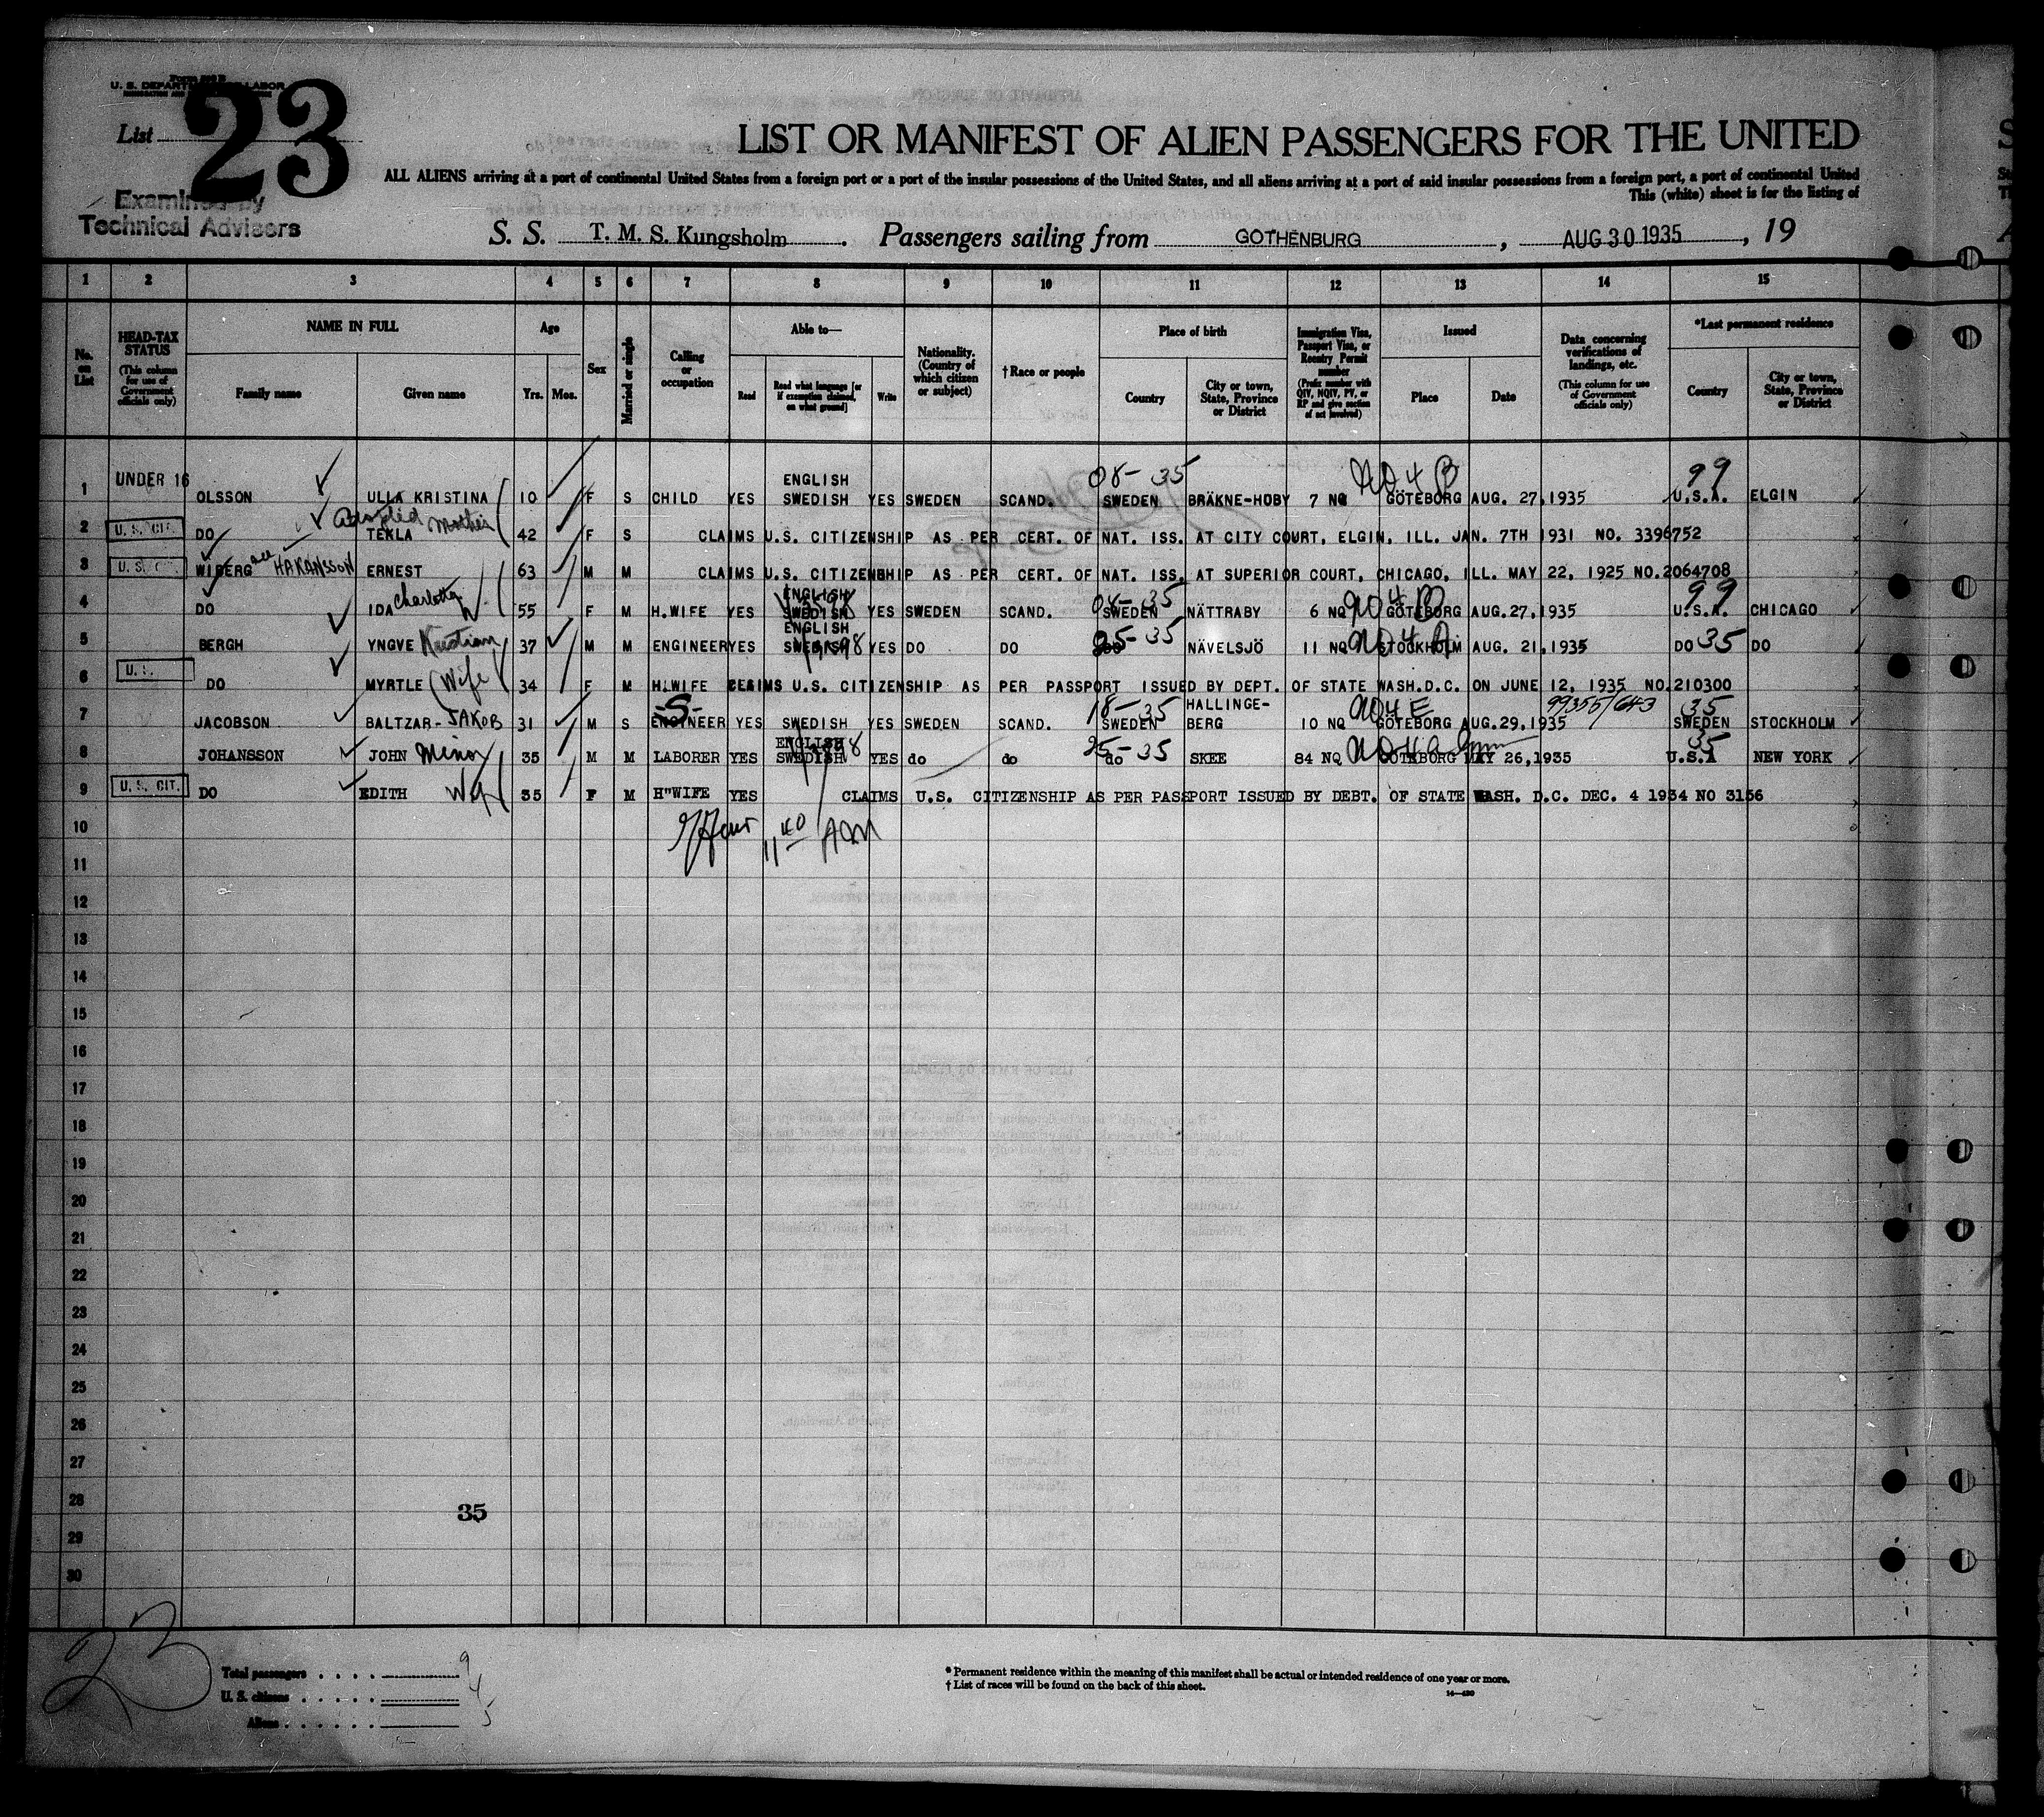 U. S. DEPARTMENT OF LABOR
List 23
Examined by
Technical Advisers
LIST OR MANIFEST OF ALIEN PASSENGERS FOR THE UNITED
ALL ALIENS arriving at a port of continental United States from a foreign port or a port of the insular possessions of the United States, and all aliens arriving at a port of said insular possessions from a foreign port, a port of continental United
This (white) sheet is for the listing of
S. S. T. M. S. Kungsholm. Passengers sailing from GOTHENBURG, AUG 30 1935, 19
1 2 3 4 5 6 7 8 9 10 11 12 13 14 15
No. on List
HEAD-TAX STATUS (This column for use of Government officials only)
NAME IN FULL
Family name
Given name
Age
Yrs. Mos.
Sex
Married or single
Calling or occupation
Able to—
Read
Read what language [or if exemption claimed, on what ground]
Write
Nationality. (Country of which citizen or subject)
†Race or people
Place of birth
Country
City or town, State, Province or District
Immigration Visa, Passport Visa, or Reentry Permit number (Prefix number with QIV, NQIV, PV, or RP and give section of act involved)
Issued
Place
Date
Data concerning verifications of landings, etc. (This column for use of Government officials only)
*Last permanent residence
Country
City or town, State, Province or District
UNDER 16 ENGLISH 08-35 NO 4 B 99
1 OLSSON ULLA KRISTINA 10 F S CHILD YES SWEDISH YES SWEDEN SCAND. SWEDEN BRÄKNE-HOBY 7 NQ GÖTEBORG AUG. 27,1935 U.S.A. ELGIN
Adopted Mother
2 U. S. CIT. DO TEKLA 42 F S CLAIMS U.S. CITIZENSHIP AS PER CERT. OF NAT. ISS. AT CITY COURT, ELGIN, ILL. JAN. 7TH 1931 NO. 3396752
3 U. S. C WIBERG HAKANSSON ERNEST 63 M M CLAIMS U.S. CITIZENSHIP AS PER CERT. OF NAT. ISS. AT SUPERIOR COURT, CHICAGO, ILL. MAY 22, 1925 NO.2064708
ENGLISH 08-35 99
4 DO IDA Charlotta 55 F M H.WIFE YES SWEDISH YES SWEDEN SCAND. SWEDEN NÄTTRABY 6 NQ NO 4 B GÖTEBORG AUG.27,1935 U.S.A. CHICAGO
ENGLISH
5 BERGH YNGVE Kristian 37 M M ENGINEER YES SWEDISH YES DO DO 25-35 NÄVELSJÖ 11 NQ STOCKHOLM AUG. 21,1935 DO 35 DO
6 U.S. DO MYRTLE (Wife 34 F M H.WIFE CLAIMS U.S. CITIZENSHIP AS PER PASSPORT ISSUED BY DEPT. OF STATE WASH.D.C. ON JUNE 12, 1935 NO.210300
-S- 18-35 HALLINGE- NO4E 99355/643 35
7 JACOBSON BALTZAR-JAKOB 31 M S ENGINEER YES SWEDISH YES SWEDEN SCAND. SWEDEN BERG 10 NQ GÖTEBORG AUG.29,1935 SWEDEN STOCKHOLM
ENGLISH 25-35 35
8 JOHANSSON JOHN Minor 35 M M LABORER YES SWEDISH YES do do do SKEE 84 NQ GÖTEBORG MAY 26,1935 U.S.A NEW YORK
9 U. S. CIT. DO EDITH Wife 35 F M H"WIFE YES CLAIMS U.S. CITIZENSHIP AS PER PASSPORT ISSUED BY DEBT. OF STATE WASH. D.C. DEC. 4 1934 NO 3156
10
11 11 40 AM
12
13
14
15
16
17
18
19
20
21
22
23
24
25
26
27
28
35
29
30
23
Total passengers . . . . 9
U. S. citizens . . . . . 4
Aliens . . . . . . 5
* Permanent residence within the meaning of this manifest shall be actual or intended residence of one year or more.
† List of races will be found on the back of this sheet.